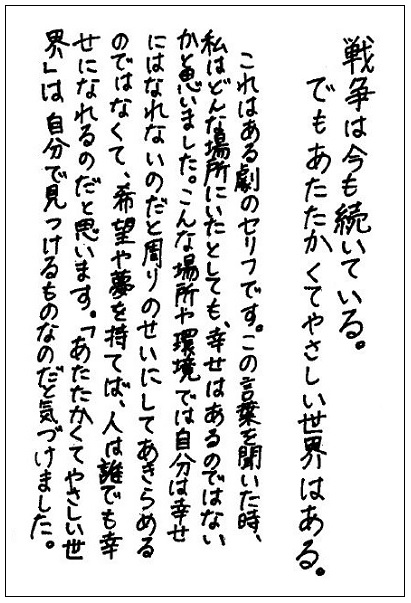 戦争は今も続いている。
でもあたたかくてやさしい世界はある。
これはある劇のセリフです。この言葉を聞いた時、
私はどんな場所にいたとしても、幸せはあるのではない
かと思いました。こんな場所や環境では自分は幸せ
にはなれないのだと周りのせいにしてあきらめる
のではなくて、希望や夢を持てば、人は誰でも幸
せになれるのだと思います。「あたたかくてやさしい世
界」は自分で見つけるものなのだと気づけました。